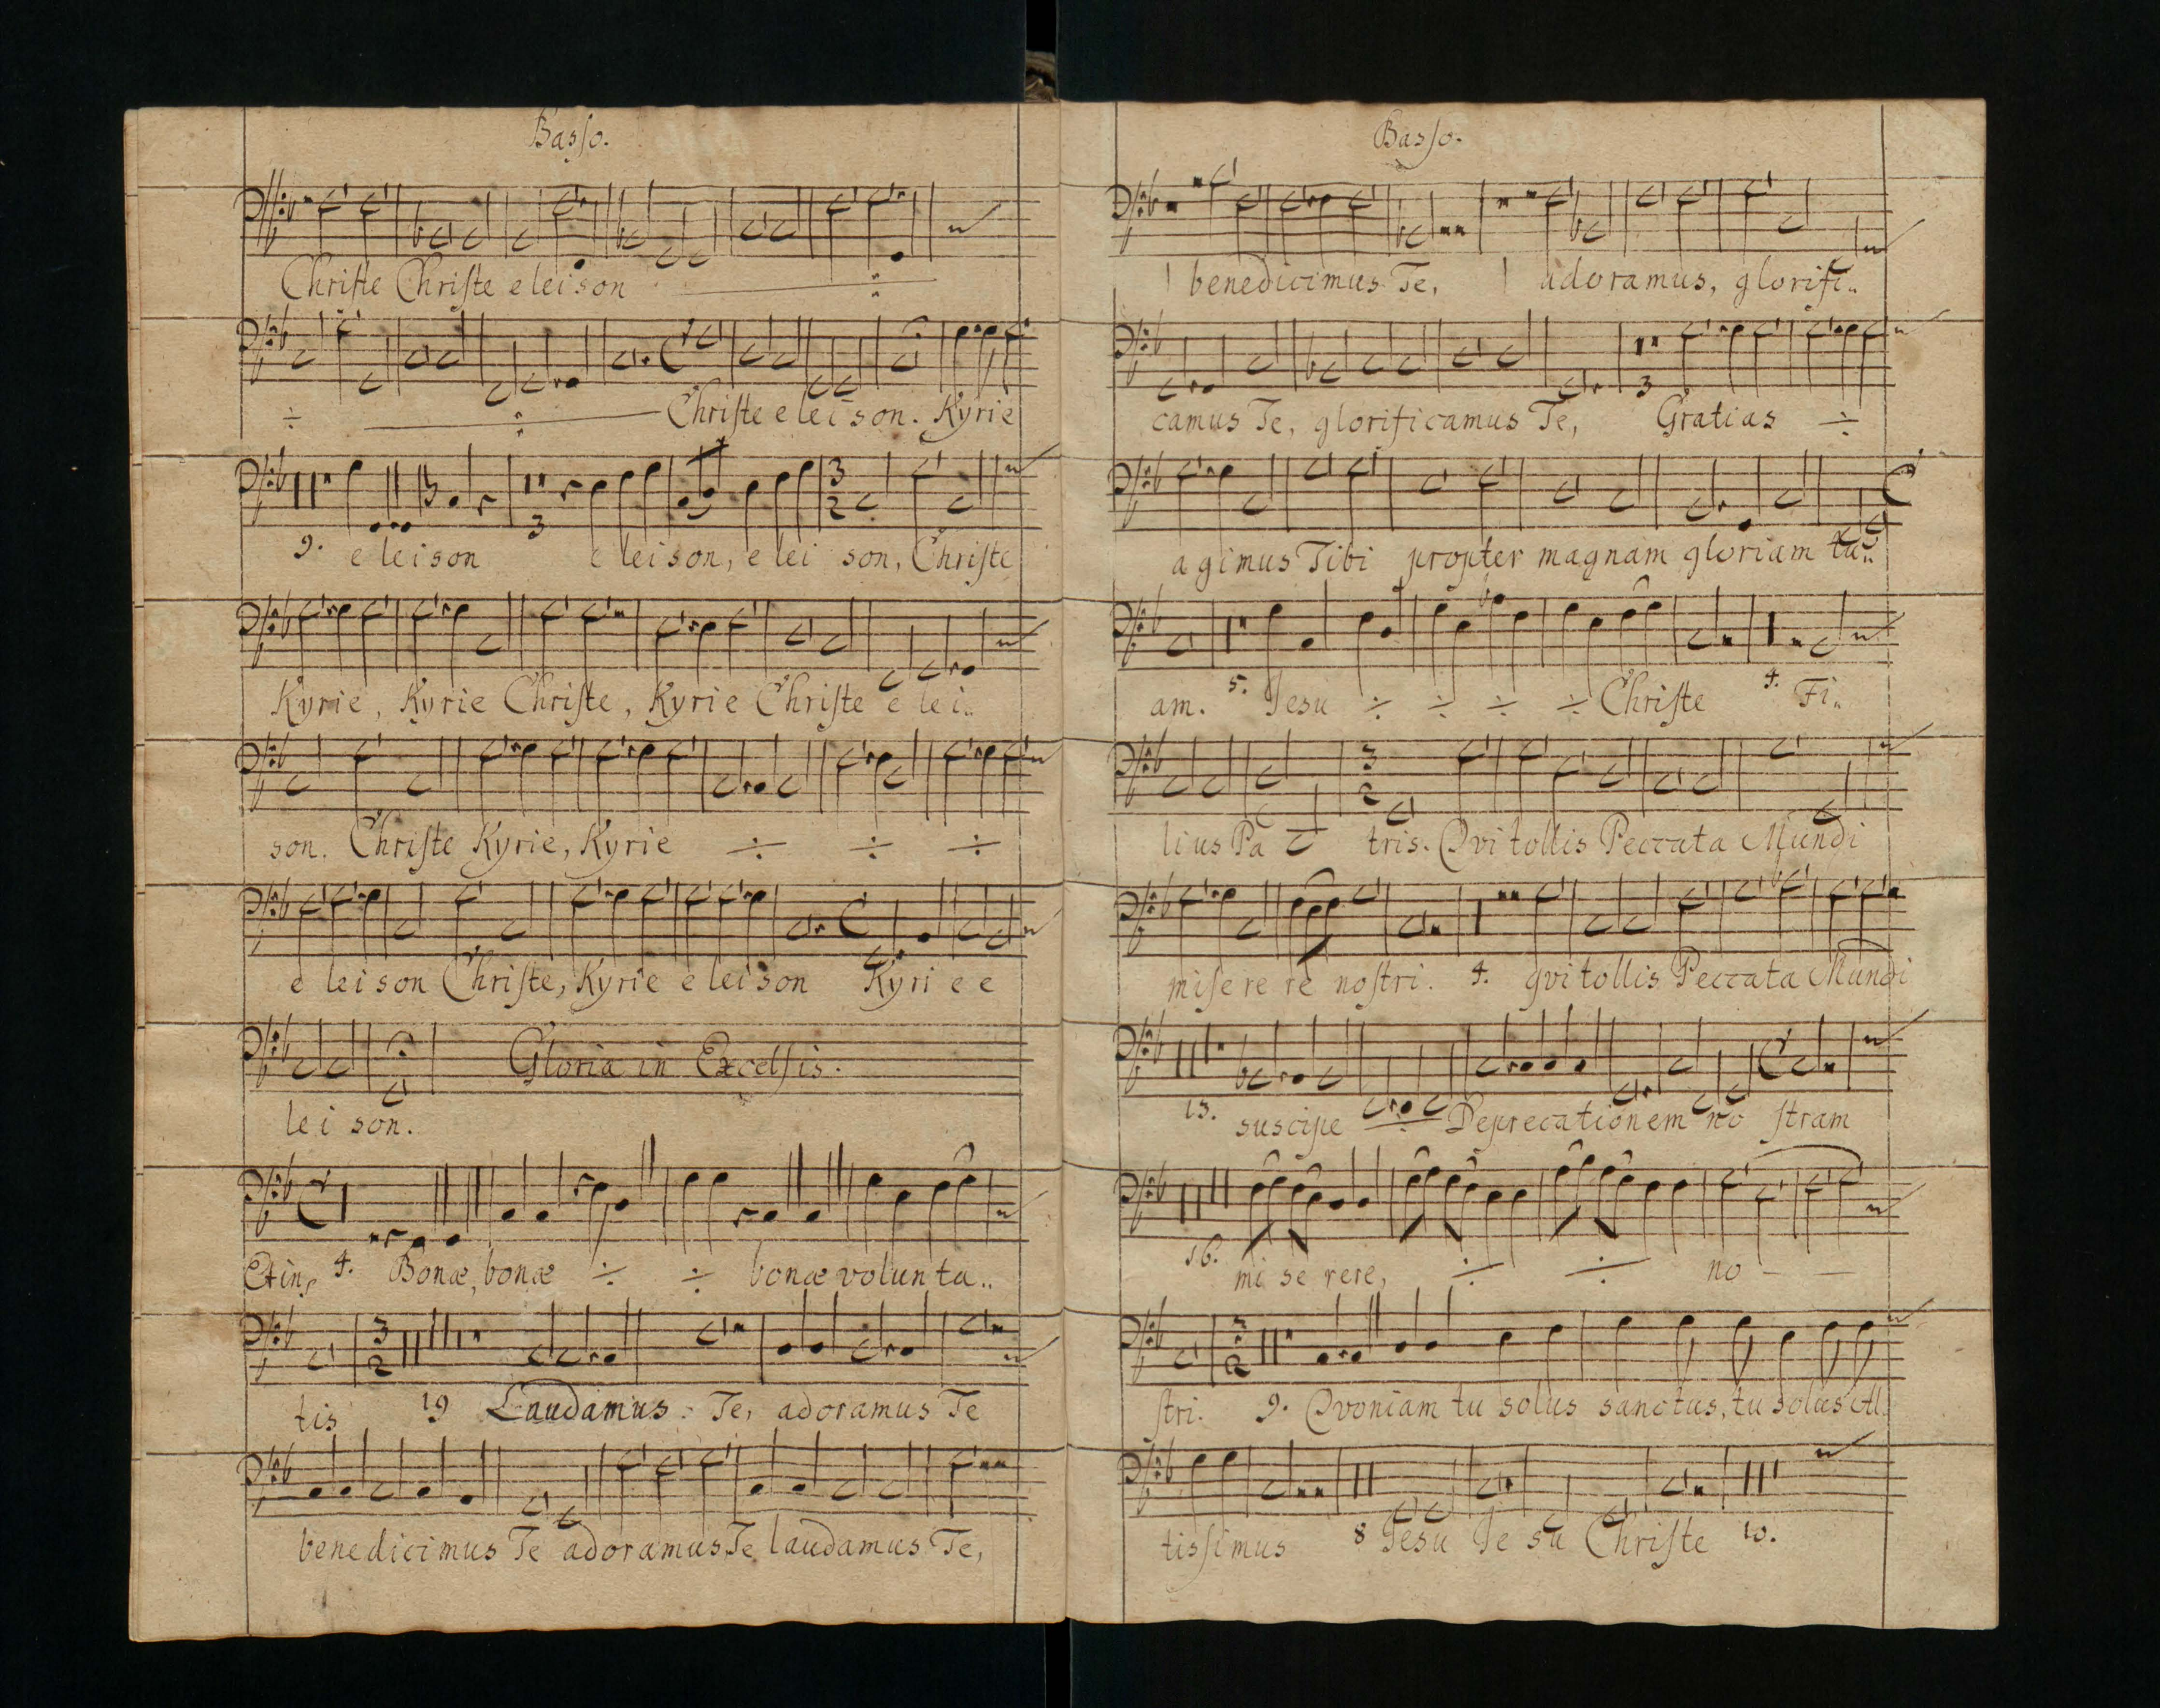 Basso.
Christe Christe eleison ÷
÷ ÷ Christe eleison. Kyrie
9. 3 3 2
eleison eleison, elei son, Christe
Kyrie, Kyrie Christe, Kyrie Christe elei..
son. Christe Kyrie, Kyrie ÷ ÷ ÷
eleison Christe, Kyrie eleison Kyri e e
Gloria in Excelsis.
lei son.
Et in 4. Bonæ, bonæ ÷ ÷ bonæ volunta..
3 2
tis 19 Laudamus Te, adoramus Te
benedicimus Te adoramus Te laudamus Te,
Basso.
benedicimus Te, adoramus, glorifi..
3
camus Te, glorificamus Te, Gratias ÷
agimus Tibi propter magnam gloriam tu..
am. 5. Jesu ÷ ÷ ÷ ÷ Christe 4. Fi..
3 2
lius Pa tris. Qvi tollis Peccata Mundi
miserere nostri. 4. qvi tollis Peccata Mundi
13. suscipe ÷ Deprecationem no stram
16. mi se rere, ÷ ÷ no — —
3 2
stri. 9. Qvoniam tu solus sanctus, tu solus Al
tissimus 8 Jesu Je su Christe 10.